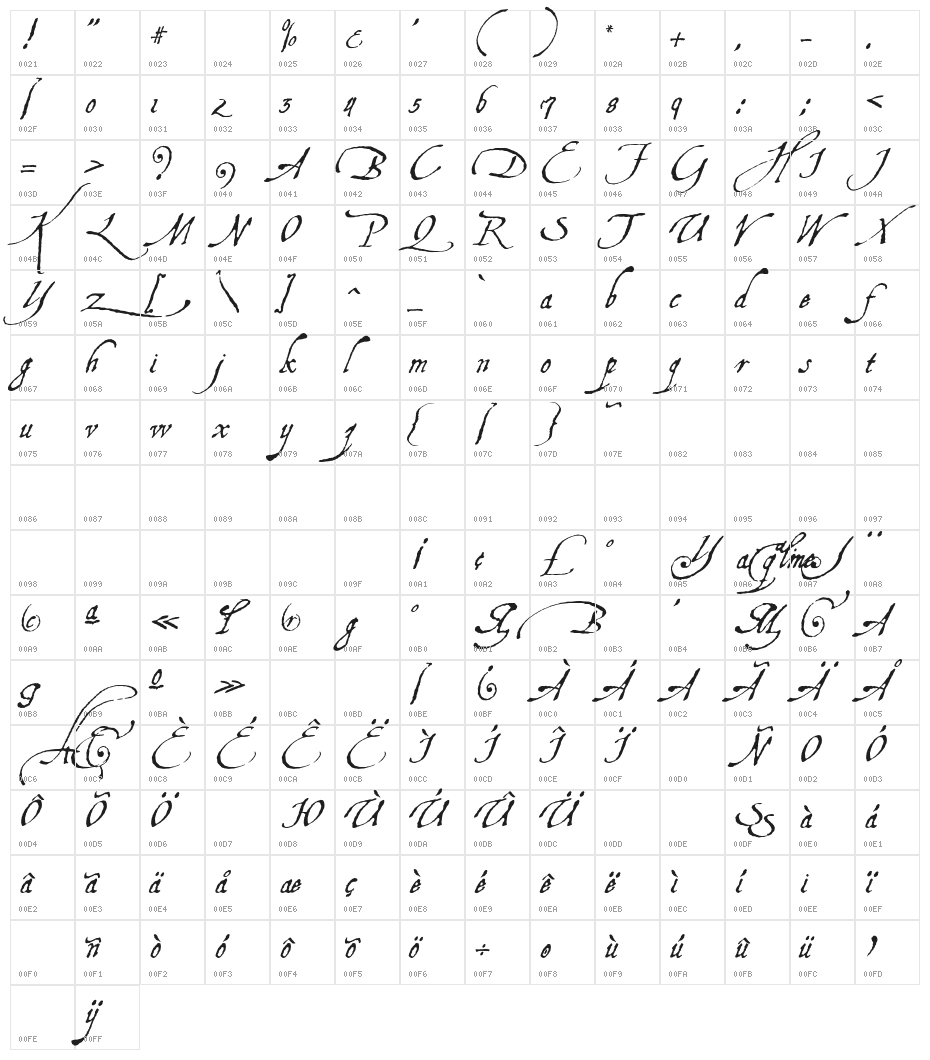 ! " # % & ' ( ) * + , - .
0021 0022 0023 0024 0025 0026 0027 0028 0029 002A 002B 002C 002D 002E
/ 0 1 2 3 4 5 6 7 8 9 : ; <
002F 0030 0031 0032 0033 0034 0035 0036 0037 0038 0039 003A 003B 003C
= > ? A B C D E F G H I J
003D 003E 003F 0040 0041 0042 0043 0044 0045 0046 0047 0048 0049 004A
K L M N O P Q R S T U V W X
004B 004C 004D 004E 004F 0050 0051 0052 0053 0054 0055 0056 0057 0058
Y Z [ \ ] ^ _ ` a b c d e f
0059 005A 005B 005C 005D 005E 005F 0060 0061 0062 0063 0064 0065 0066
g h i j k l m n o p q r s t
0067 0068 0069 006A 006B 006C 006D 006E 006F 0070 0071 0072 0073 0074
u v w x y z { | } ~
0075 0076 0077 0078 0079 007A 007B 007C 007D 007E 0082 0083 0084 0085
0086 0087 0088 0089 008A 008B 008C 0091 0092 0093 0094 0095 0096 0097
¡ ¢ £ ° Y ¨
0098 0099 009A 009B 009C 009F 00A1 00A2 00A3 00A4 00A5 00A6 00A7 00A8
© ª « ® g ° B ´ A
00A9 00AA 00AB 00AC 00AE 00AF 00B0 00B1 00B2 00B3 00B4 00B6 00B7
g º » ¿ À Á A Ã Ä Å
00B8 00B9 00BA 00BB 00BC 00BD 00BE 00BF 00C0 00C1 00C2 00C3 00C4 00C5
Æ Ç È É Ê Ë Ì Í Î Ï Ñ O Ó
00C6 00C7 00C8 00C9 00CA 00CB 00CC 00CD 00CE 00CF 00D0 00D1 00D2 00D3
Ô Õ Ö Ù Ú Û Ü à á
00D4 00D5 00D6 00D7 00D8 00D9 00DA 00DB 00DC 00DD 00DE 00DF 00E0 00E1
â ã ä å æ ç è é ê ë ì í i ï
00E2 00E3 00E4 00E5 00E6 00E7 00E8 00E9 00EA 00EB 00EC 00ED 00EE 00EF
ñ ò ó ô õ ö ÷ ø ù ú û ü
00F0 00F1 00F2 00F3 00F4 00F5 00F6 00F7 00F8 00F9 00FA 00FB 00FC 00FD
ÿ
00FE 00FF